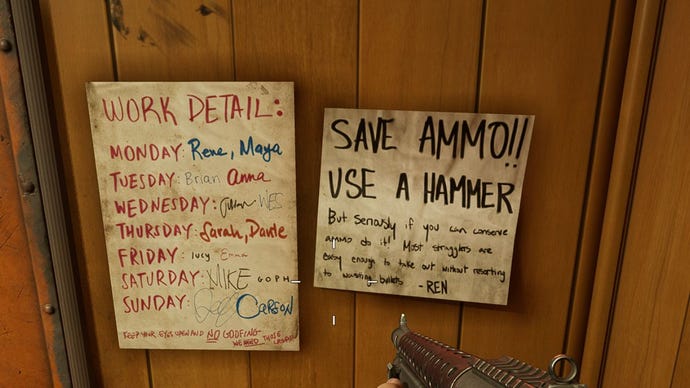 WORK DETAIL:
MONDAY: Rene, Maya
TUESDAY: Brian Anna
WEDNESDAY: WES
THURSDAY: Sarah, Dante
FRIDAY: Lucy Emma
SATURDAY: MIKE GOPH
SUNDAY: CARSON
KEEP YOUR EYES OPEN AND NO GOOFING-
WE NEED THOSE
SAVE AMMO!!
USE A HAMMER
But seriously if you can conserve
ammo do it! Most stragglers are
easy enough to take out without resorting
to wasting bullets
-REN